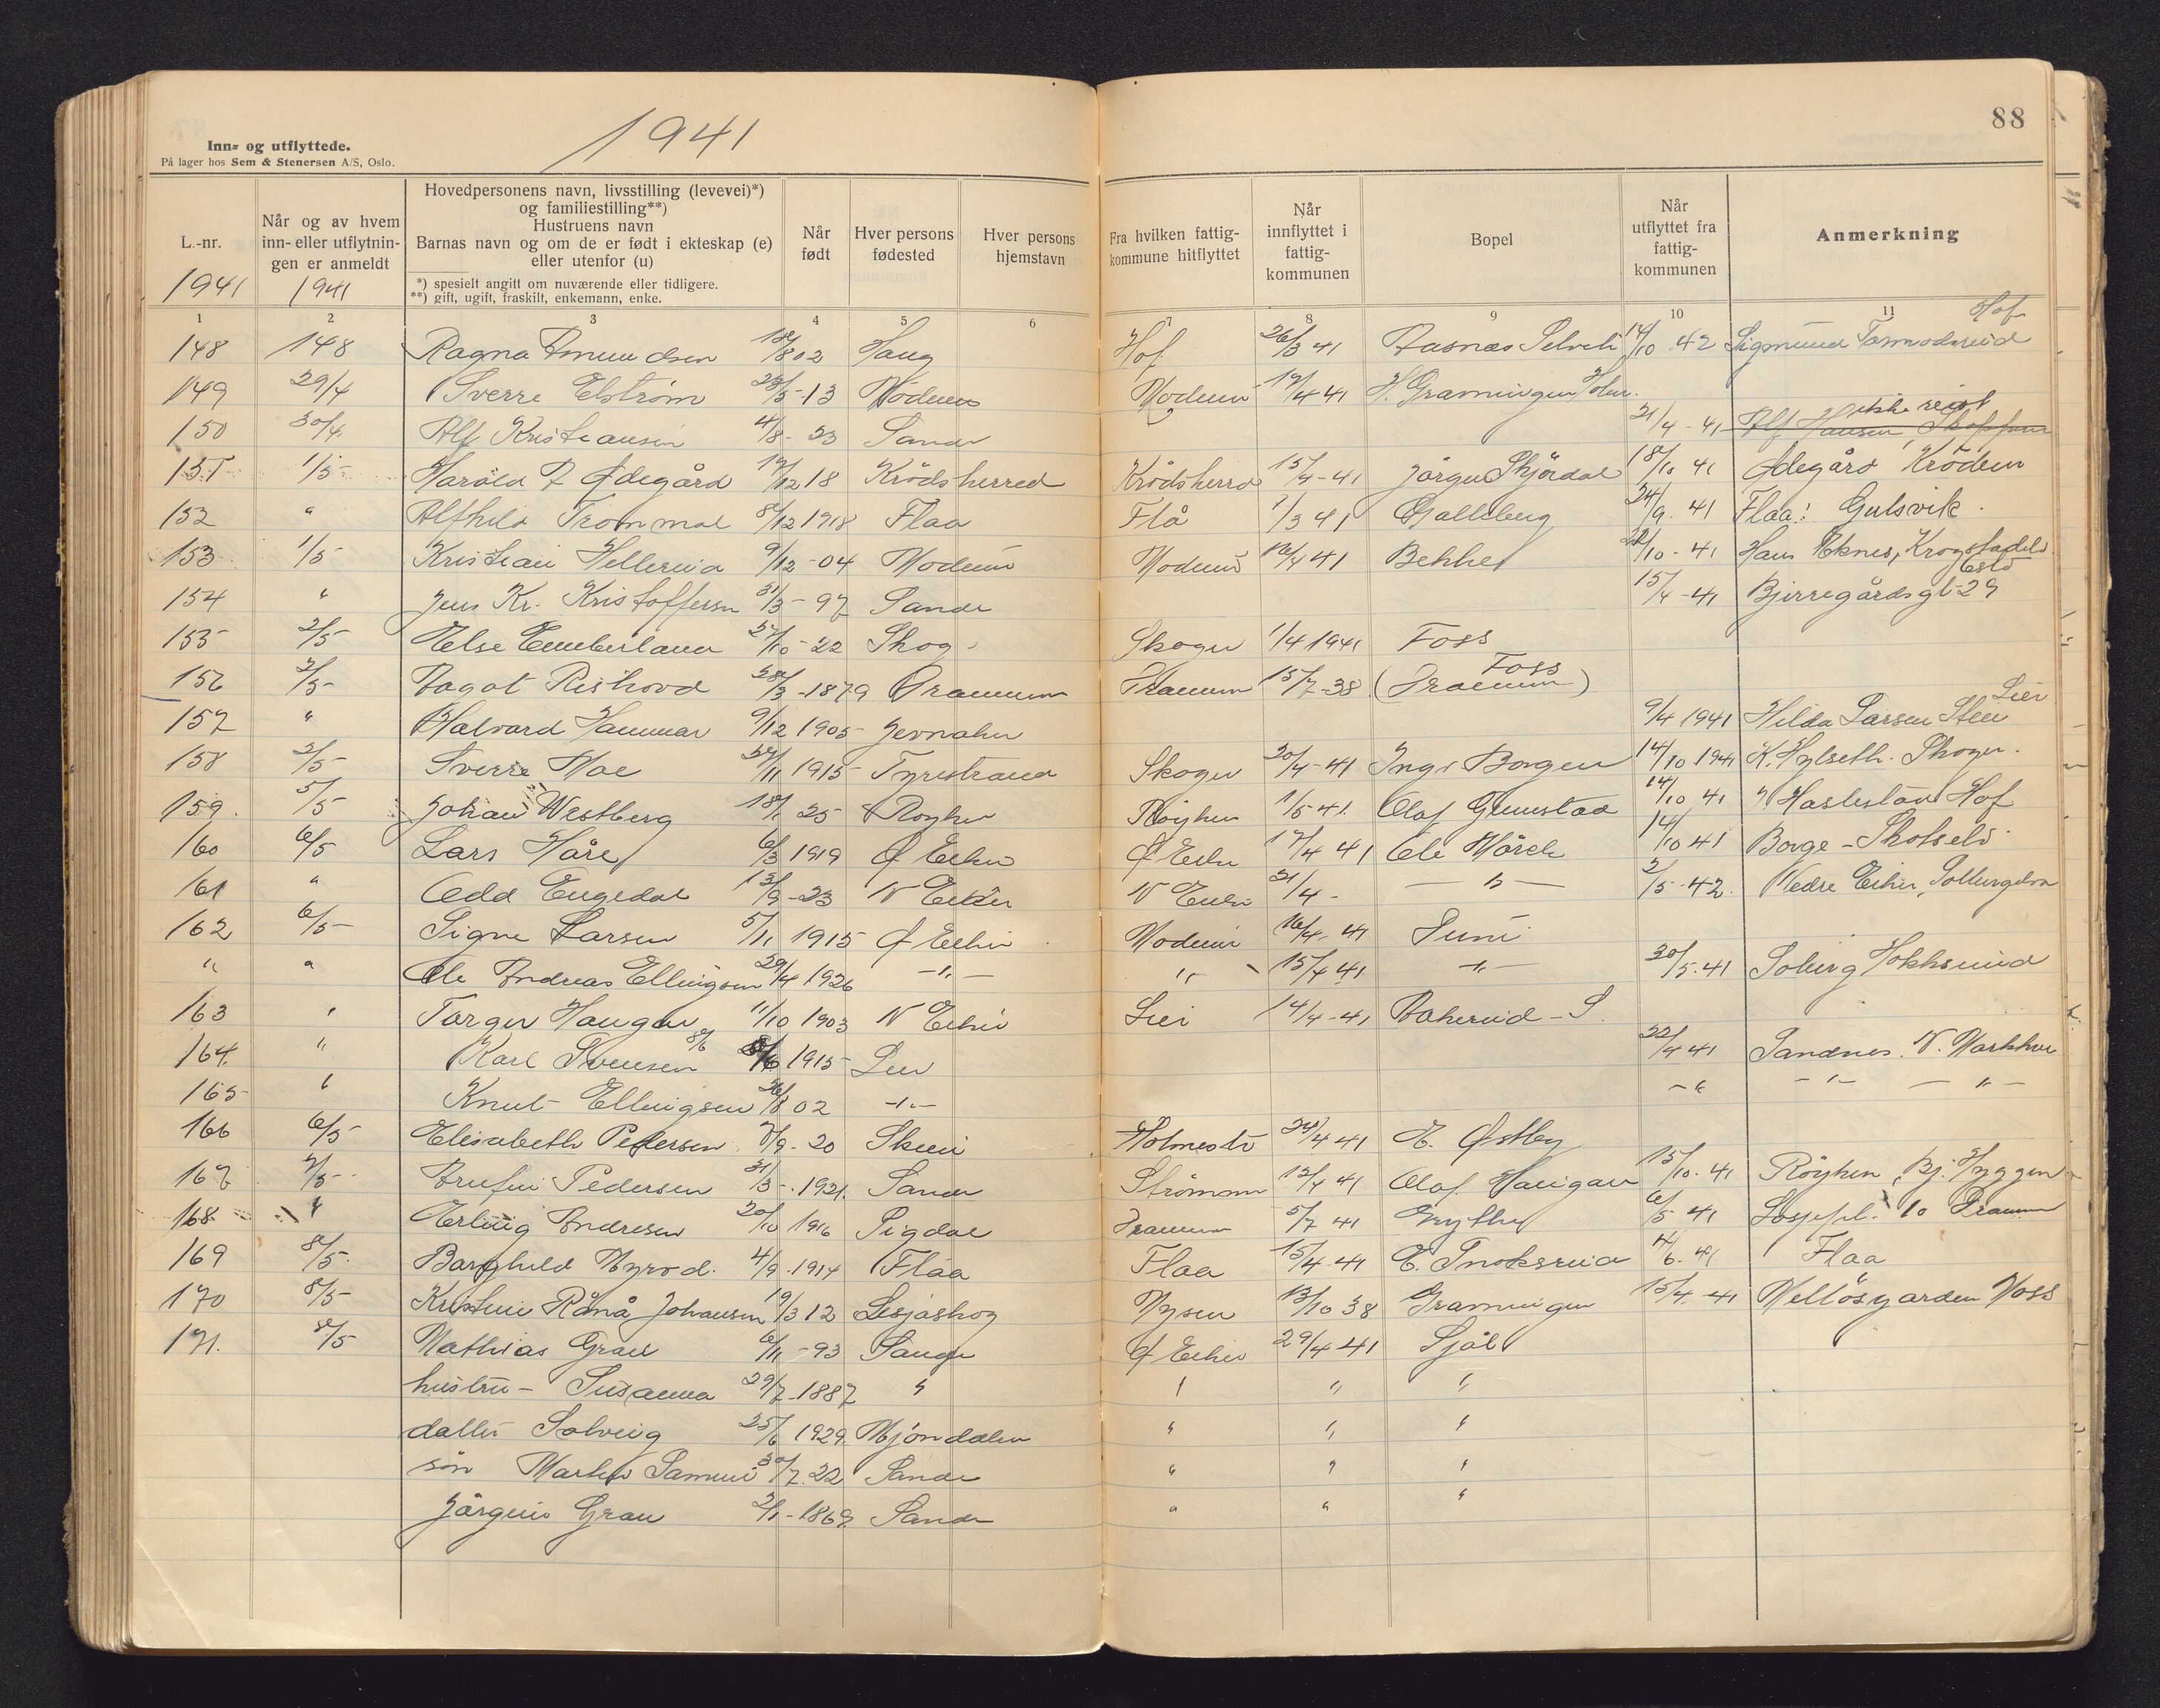 1941
88
Inn- og utflyttede.
På lager hos Sem & Stenersen A/S, Oslo.
L.-nr.
1941
Når og av hvem inn- eller utflytningen er anmeldt
1941
Hovedpersonens navn, livsstilling (levevei)*)
og familiestilling**)
Hustruens navn
Barnas navn og om de er født i ekteskap (e)
eller utenfor (u)
*) spesielt angitt om nuværende eller tidligere.
**) gift, ugift, fraskilt, enkemann, enke.
Når født
Hver persons fødested
Hver persons hjemstavn
Fra hvilken fattigkommune hitflyttet
Når innflyttet i fattigkommunen
Bopel
Når utflyttet fra fattigkommunen
Anmerkning
1 2 3 4 5 6 7 8 9 10 11
148 148 Ragna Amundsen 18/8 02 Haug Hof 26/3 41 Aasnæs Selvik 14/10 42 Sigmund Tormodsrud Hof
149 29/4 Sverre Elstrøm 23/5-13 Modum Modum 19/4 41 H. Graningen Holm.
150 30/4 Alf Kristiansen 4/8-23 Sande 21/4-41 Alf Hansen, ikke reist
151 1/5 Harald A Ødegård 19/12 18 Krødsherred Krødsherrd 15/4-41 Jørgen Skjørdal 18/10 41 Ødegård Krødern
152 " Alfhild Trommal 8/12 1918 Flaa Flå 1/3 41 Galleberg 24/9. 41 Flaa: Gulsvik.
153 1/5 Kristian Hellerud 9/12-04 Modum Modum 16/4 41 Bekke 22/10-41 Hans Eknes, Krogstadelv
154 " Jens Kr. Kristoffersen 31/3-97 Sande 15/4-41 Bjerregårdsgt-29 Oslo
155 2/5 Else Emberland 27/10-22 Skog. Skoger 1/4 1941 Foss
156 2/5 Dagot Rishovd 28/3-1879 Drammen Drammen 15/7-38 (Drammen) Foss
157 " Halvard Hammer 9/12 1905 Jevnaker 9/4 1941 Hilda Larsen Steen Lier
158 2/5 Sverre Moe 27/11 1915 Tyristrand Skoger 20/4-41 Ingv Borgen 14/10 1941 K. Hylseth. Skoger.
159. 5/5 Johan Westberg 18/1 25 Røyken Røyken 1/5 41. Olaf Grimstad 14/10 41 Haslestad Hof
160 6/5 Lars Håre 6/3 1919 Ø Eiker Ø Eiker 17/4 41 Ole Mørch 14/10 41 Borge - Skotselv
161 " Odd Engedal 13/9-23 N Eiker N Eiker 21/4- — " — 2/5.42. Nedre Eiker, Solbergelva
162 6/5 Signe Larsen 5/11 1915 Ø Eiker Modum 16/4. 41
" " Ole Andreas Ellingsen 29/4 1926 — " — " 15/4 41 — " — 30/5.41 Solberg Hokksund
163 " Torger Haugen 11/10 1903 N Eiker Lier 14/4-41 Bakerud - S. 
164. " Karl Svensen 8/6 1915 Lier 22/4 41 Sandnes. N. Markker
165 " Knut Ellingsen 26/8 02 — " — — " — " — — " —
166 6/5 Elisabeth Pedersen 7/9.20 Skien Holmestr 24/4 41 E. Østby
167 7/5 Arnfin Pedersen 31/3-.1921. Sande Strømmen 15/4 41 Olaf Haugan 15/10.41 Røyken, Bj. Hyggen
168. " Erling Andresen 20/10 1916 Sigdal Drammen 5/7 41 Grythe 6/5 41 Losjepl. 10 Drammen
169 8/5. Borghild Myrod. 4/9.1914 Flaa Flaa 15/4-41 E. Snoksrud 4/6.41 Flaa
170 8/5 Kristine Rånå Johansen 19/3 12 Lesjaskog Mysen 13/10 38 Graningen 15/4.41 Melløsgarden Moss
171. 8/5 Mathias Grau 6/11-93 Sande Ø Eiker 29/4 41 Sjøl
hustru - Susanna 29/7-1887 " " " "
datter Solveig 25/6 1929. Mjøndalen " " "
søn Martin Samuel 30/7.22 Sande " " "
Jørgine Grau 2/1-1867 Sande " " "